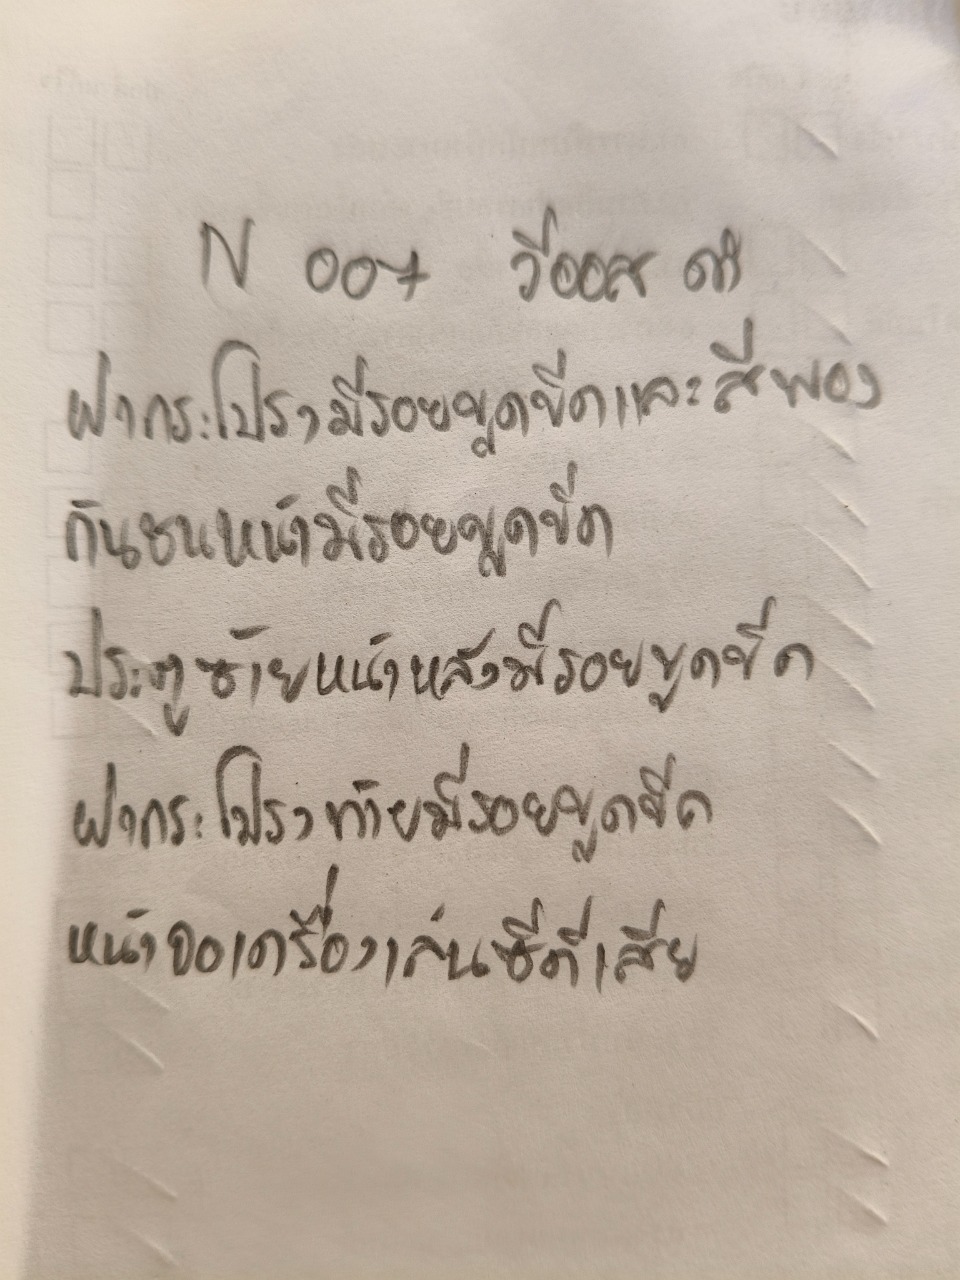 N 007 วีออส ดำ
ฝากระโปรงมีรอยขูดขีดและสีพอง
กันชนหน้ามีรอยขูดขีด
ประตูซ้ายหน้าหลังมีรอยขูดขีด
ฝากระโปรงท้ายมีรอยขูดขีด
หน้าจอเครื่องเล่นซีดีเสีย